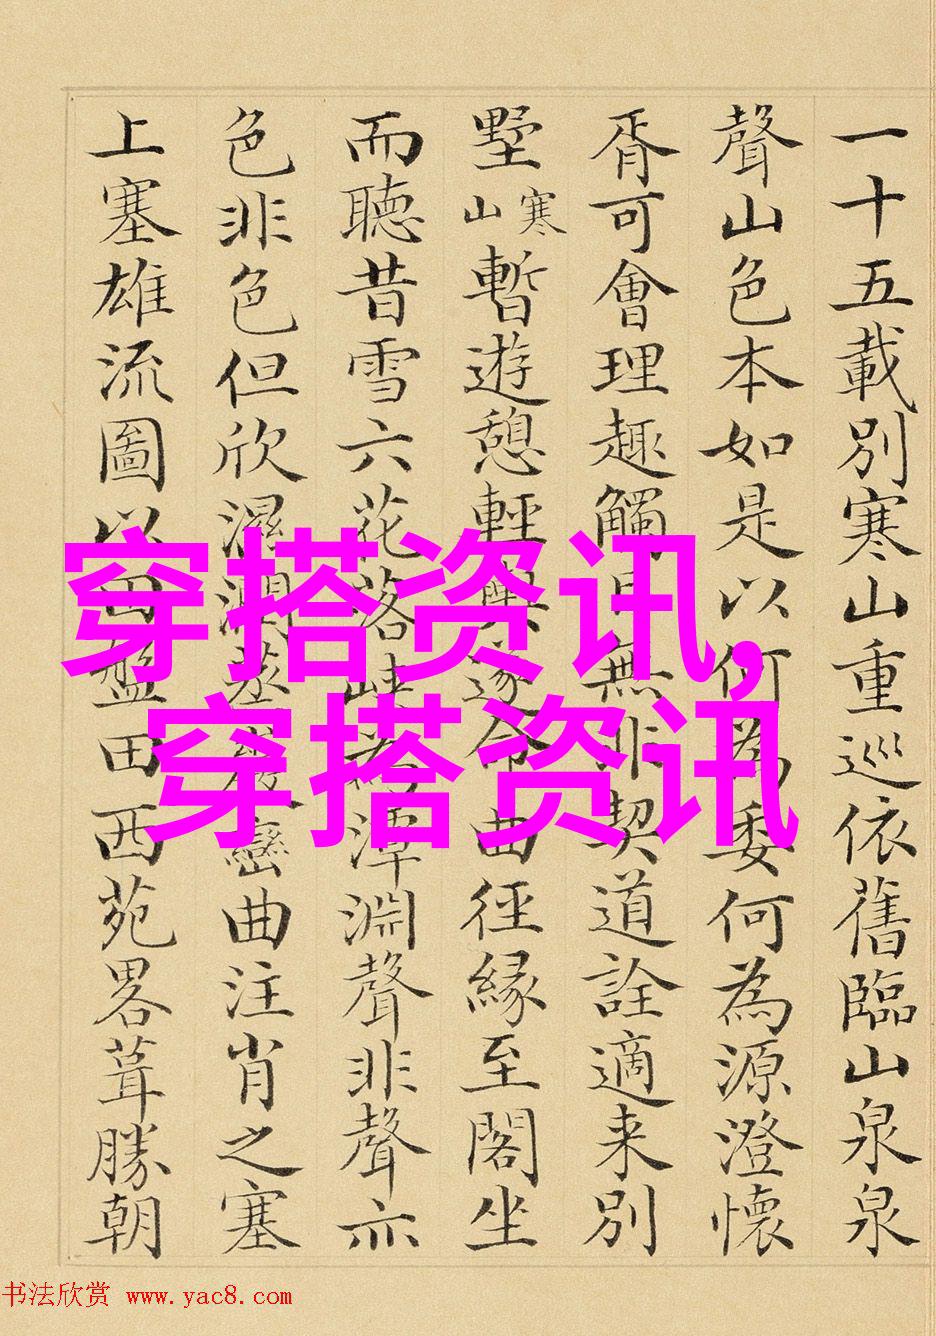 一十五載別寒山重巡依舊臨山泉泉
聲山色本如是以何為委何為源澄懷
胥可會理趣觸目無非契道詮適来別
墅寒山暫遊憩輕輿遂命曲徑緣至閣坐
而聽昔雪六花落峭為潭淵聲非聲亦
色非色但欣濕潤巒曲注肖之塞
上塞雄流圖以田盤田西苑畧葺勝朝
穿搭资讯,
穿搭资讯
书法欣赏 www.yac8.com